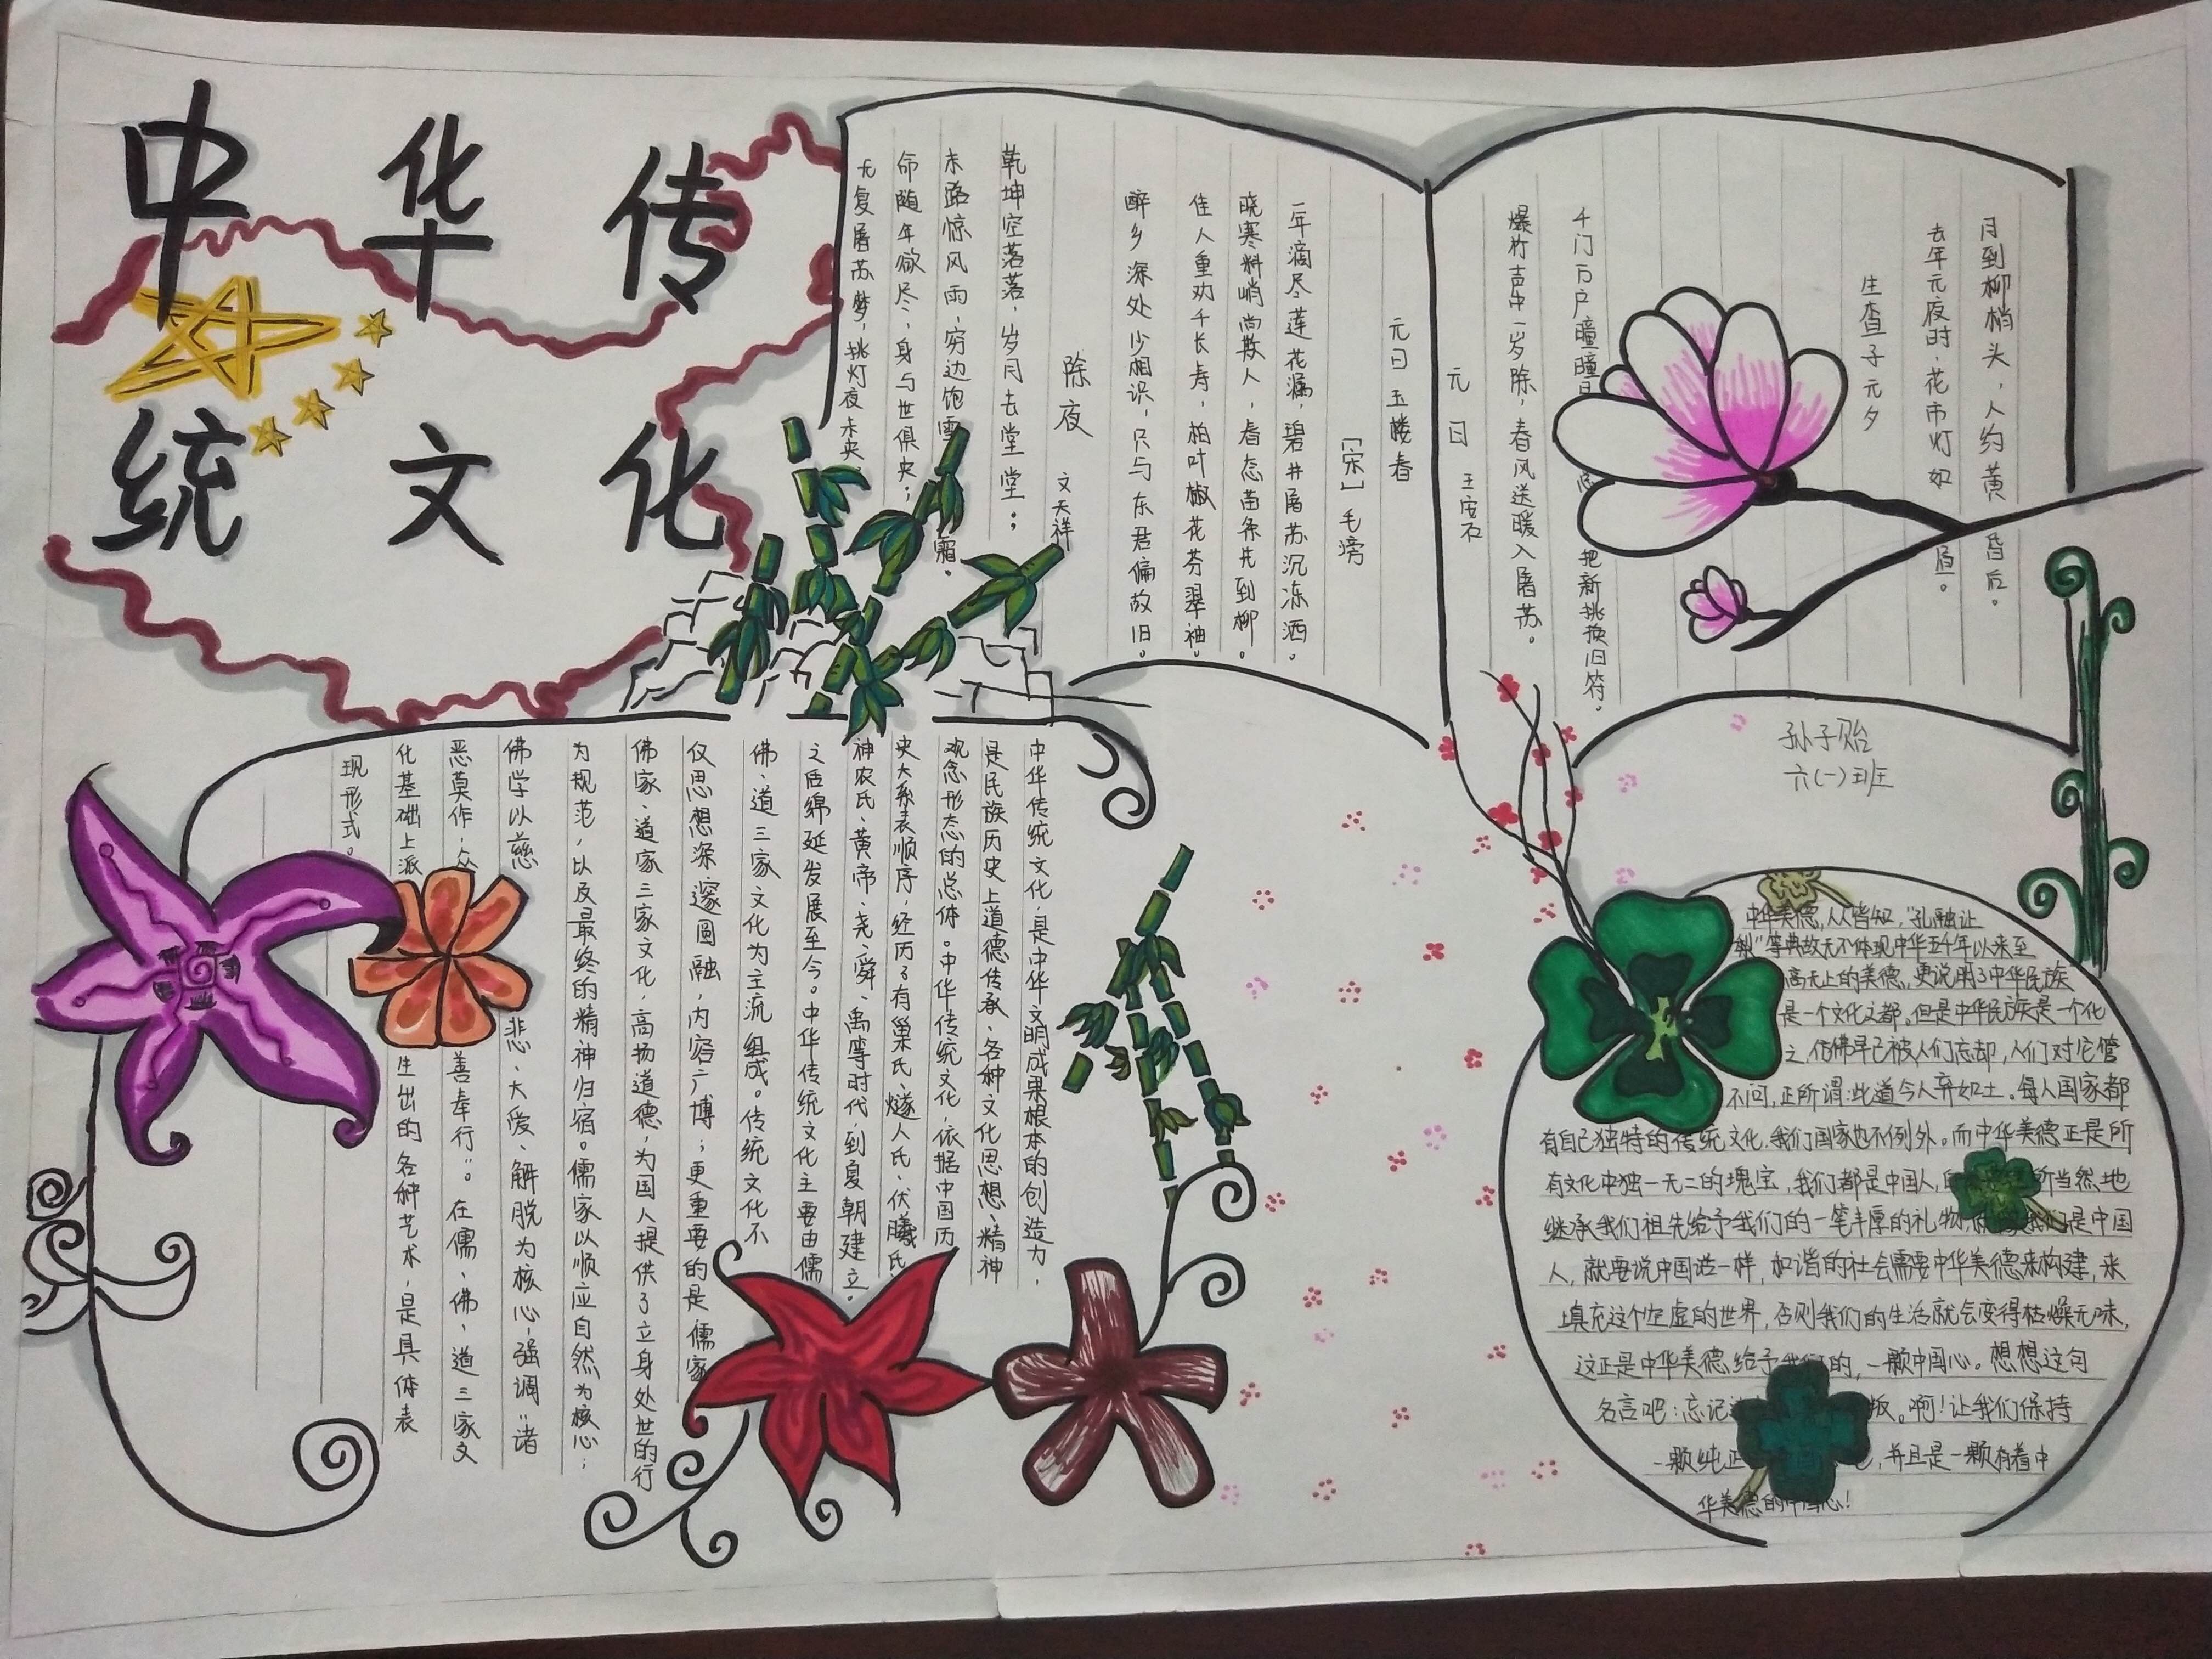 中华传
统文化
元日 玉楼春
[宋]毛滂
一年滴尽莲花漏，碧井屠苏沉冻酒。
晓寒料峭尚欺人，春态苗条先到柳。
佳人重劝千长寿，柏叶椒花芬翠袖。
醉乡深处少相识，只与东君偏故旧。
除夜 文天祥
乾坤空落落，岁月去堂堂；
末路惊风雨，穷边饱雪霜。
命随年欲尽，身与世俱央；
无复屠苏梦，挑灯夜未央。
元日 王安石
爆竹声中一岁除，春风送暖入屠苏。
千门万户瞳瞳日 把新桃换旧符。
生查子元夕
去年元夜时，花市灯如
月到柳梢头，人约黄昏后。
孙子贻
六(一)班
中华传统文化，是中华文明成果根本的创造力，
是民族历史上道德传承、各种文化思想、精神
观念形态的总体。中华传统文化，依据中国历
史大系表顺序，经历了有巢氏、燧人氏、伏羲氏、
神农氏、黄帝、尧、舜、禹等时代，到夏朝建立。
之后绵延发展至今。中华传统文化主要由儒
佛、道三家文化为主流组成。传统文化不
仅思想深邃圆融，内容广博；更重要的是，儒家
佛家、道家三家文化，高扬道德，为国人提供了立身处世的行
为规范，以及最终的精神归宿。儒家以顺应自然为核心；
佛学以慈悲、大爱、解脱为核心，强调"诸
恶莫作，众善奉行"。在儒、佛、道三家文
化基础上派生出的各种艺术，是具体表
现形式。
中华美德，人人皆知，"孔融让
梨"等典故无不体现中华五千年以来至
高无上的美德，更说明了中华民族
是一个文化之都。但是中华民族是一个化
之，仿佛早已被人们忘却，人们对它管
不问，正所谓：此道今人弃如土。每人国家都
有自己独特的传统文化，我们国家也不例外。而中华美德正是所
有文化中独一无二的瑰宝，我们都是中国人， 所当然地
继承我们祖先给予我们的一笔丰厚的礼物 们是中国
人，就要说中国话一样，和谐的社会需要中华美德来构建，来
填充这个空虚的世界，否则我们的生活就会变得枯燥无味，
这正是中华美德给予我们的，一颗中国心。想想这句
名言吧：忘记 叛。啊！让我们保持
一颗纯正 ，并且是一颗有着中
华美德的中国心！